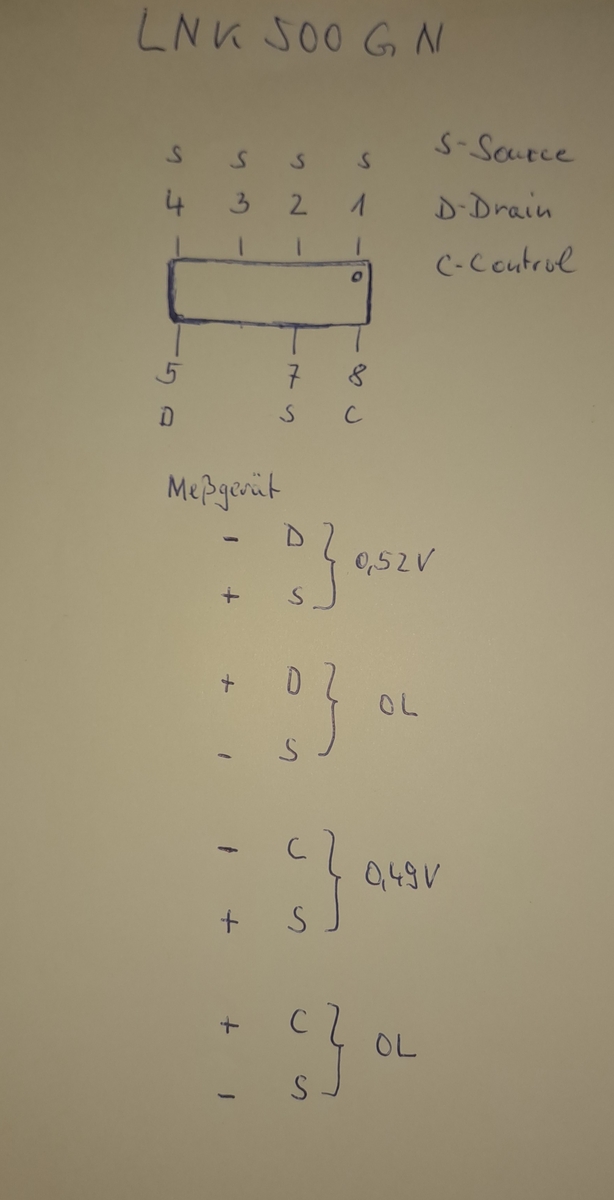 LNK 500 GN
S S S S S-Source
4 3 2 1 D-Drain
C-Control
5 7 8
D S C
Meßgerät
- D
0,52V
+ S
+ D
OL
- S
- C
0,49V
+ S
+ C
OL
- S